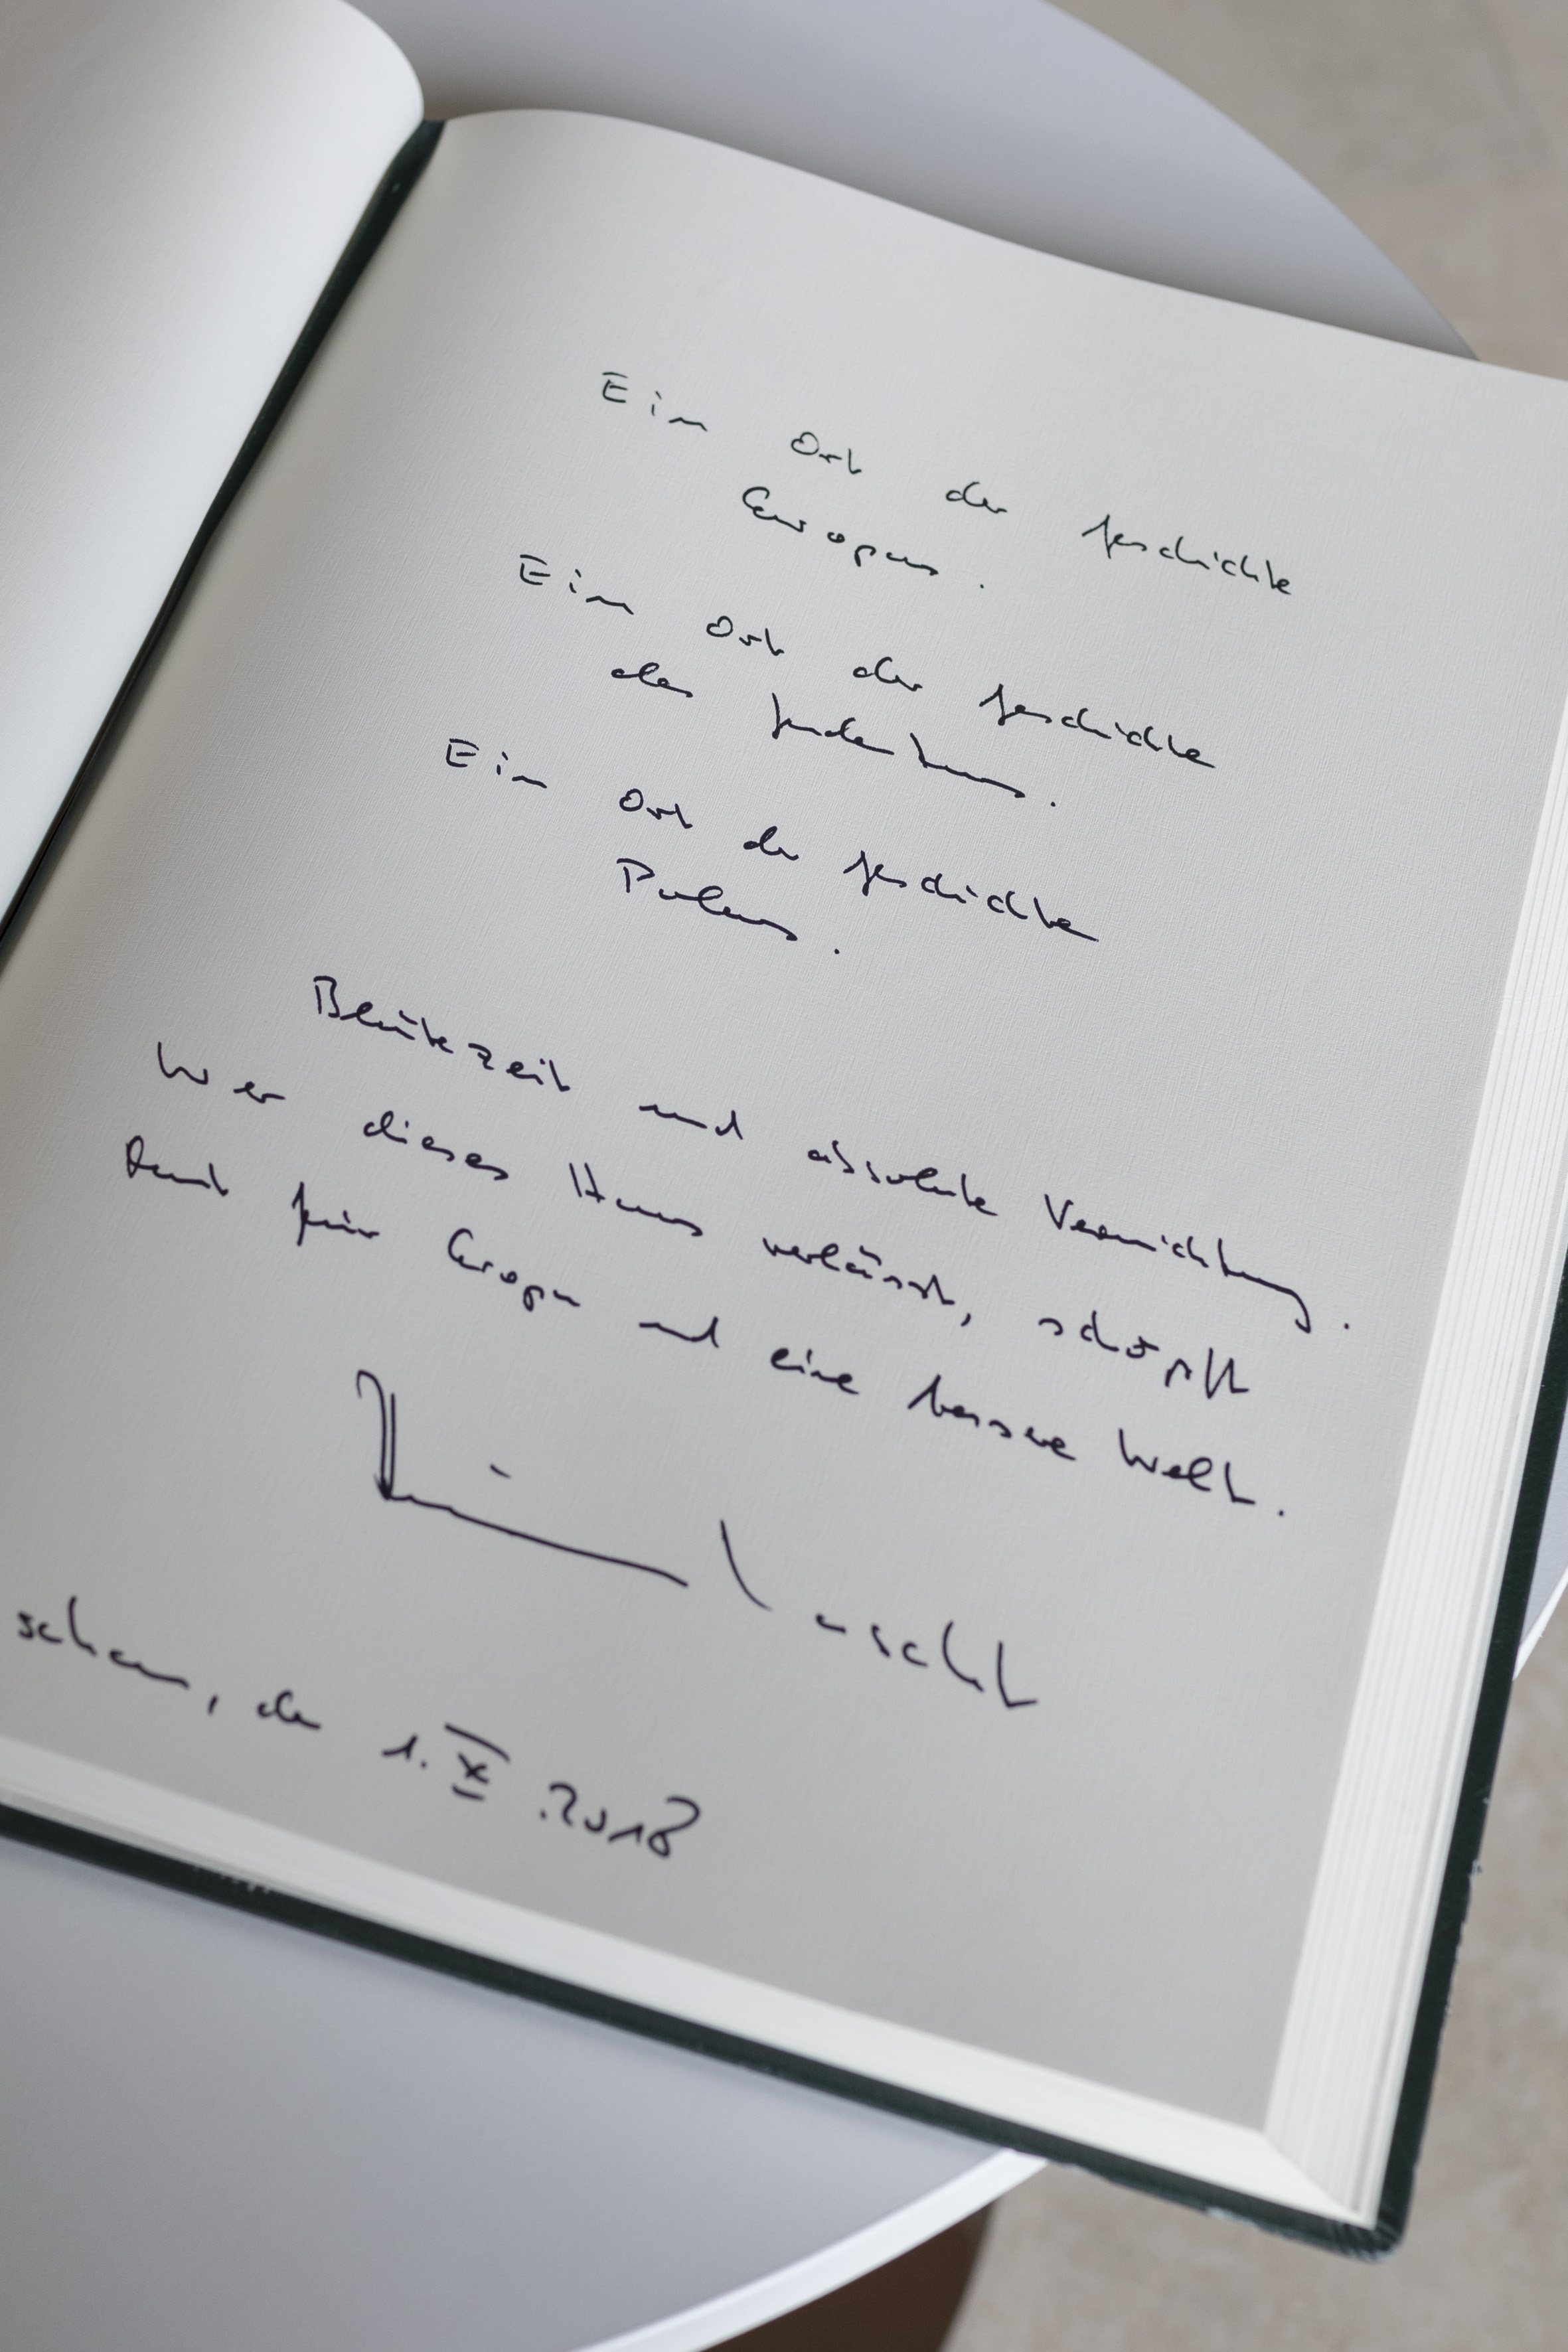 Ein Ort der Geschichte
Europas.
Ein Ort der Geschichte
des Judentums.
Ein Ort der Geschichte
Polens.
Blütezeit und absolute Vernichtung.
Wer dieses Haus verlässt, schöpft
Kraft für Europa und eine bessere Welt.
Armin Laschet
schau, den 1.X.2018